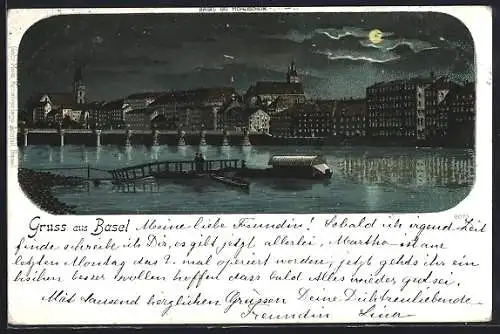 BASEL BEI MONDSCHEIN
Gruss aus Basel Meine liebe Freundin! Sobald ich irgend Zeit
finde schreibe ich Dir, es gibt jetzt allerlei, Martha ist am
letzten Montag das 2. mal operiert worden, jetzt gehts ihr ein
bischen besser wollen hoffen dass bald Alles wieder gut sei.
Mit tausend herzlichen Grüssen Deine Dich treuliebende
Freundin Lina